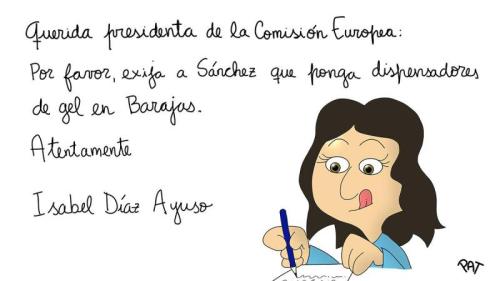 Querida presidenta de la Comisión Europea:
Por favor, exija a Sánchez que ponga dispensadores
de gel en Barajas.
Atentamente
Isabel Díaz Ayuso
PAT